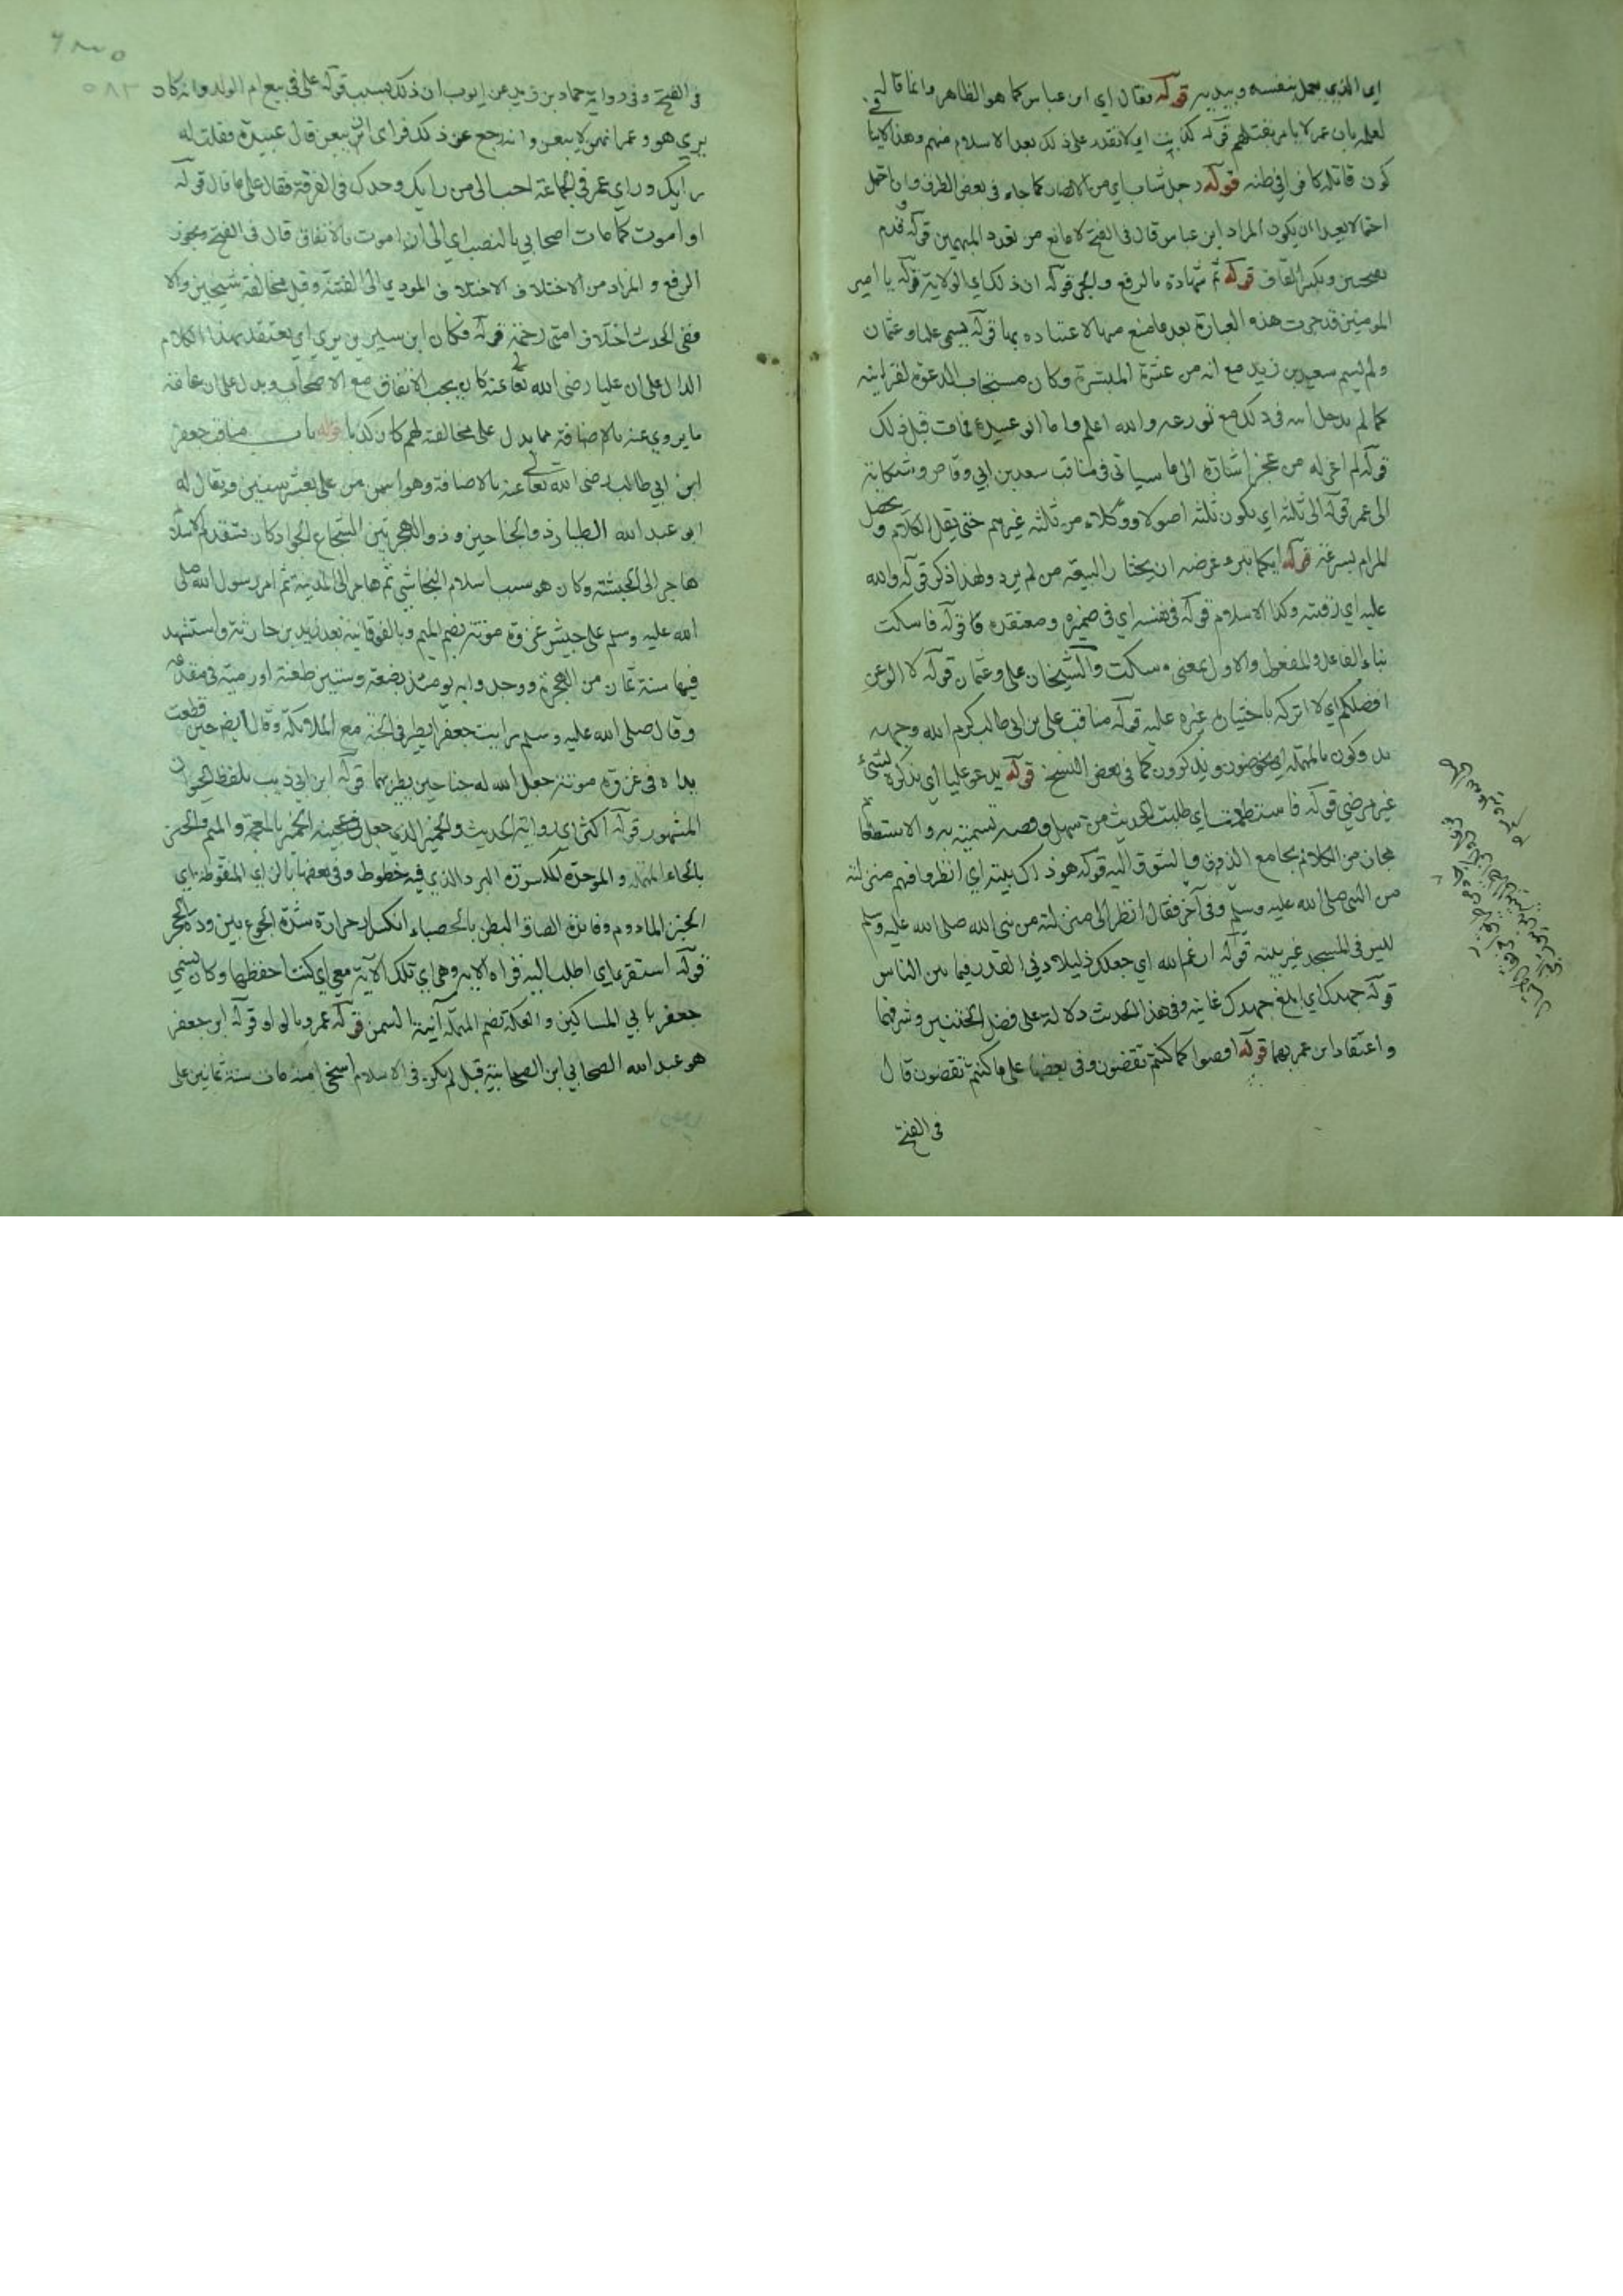 اي الذي يعمل بنفسه وبيديه قوله فقال اي ابن عباس كما هو الظاهر وانما قاله
لعلمه بان عمر لا يامر بقتلهم قوله كذبت اي لا تقدر على ذلك بعد الاسلام منهم وهذا لاينافي
كون قاتله كافرا في ظنه قوله رجل شاب اي من الانصار كما جاء في بعض الطرق وان احتمل
احتمالا بعيدا ان يكون المراد ابن عباس قال في الفتح لا مانع من تعدد المبهمين قوله وقدم
بفتحتين وبكسر القاف قوله ثم شهادة بالرفع والجر قوله ان ذلك اي الولاية قوله يا امير
المومنين قد جرت هذه العبارة بعد ما منع منها لاعتياده بها قوله يسمى عليا وعثمان
ولم يسم سعيد بن زيد مع انه من عشرة المبشرة وكان مستجاب الدعوة لقرابته
كما لم يدخل ابنه في ذلك مع تورعه والله اعلم واما ابو عبيدة فمات قبل ذلك
قوله لم اعزله من عجز اشارة الى ما سياتي في مناقب سعد بن ابي وقاص وشكايته
الى عمر قوله الى ثلثة اي يكون ثلثة اصولا ووكلاء من ثلثة غيرهم حتى يقل الكلام ويحصل
المرام بسرعة قوله ايكما تبرء غرضه ان يختار للبيعة من لم يرد ولهذا ذكر قوله والله
عليه اي رقيبه وكذا الاسلام قوله في نفسه اي في ضميره ومعتقده قوله فاسكت
بناء الفاعل والمفعول والاول بمعنى سكت والشيخان علي وعثمان قوله لا الو عن
افضلكم اي لا اتركه باختيار غيره عليه قوله مناقب علي بن ابي طالب كرم الله وجهه
يدوكون بالمهملة اي يخوضون ويذكرون كما في بعض النسخ قوله يدعو عليا اي يذكره بشيء
غير مرضي قوله فاستطعمت اي طلبت الحديث من سهل وقصه تسميته به والاستطعام
مجاز من الكلام بجامع الذوق والشوق اليه قوله هو ذاك بيته اي انظروا فهم منزلته
من النبي صلى الله عليه وسلم وفي آخر فقال انظر الى منزلته من نبي الله صلى الله عليه وسلم
ليس في المسجد غير بيته قوله ارغم الله اي جعلك ذليلا دني القدر فيما بين الناس
قوله جهدك اي ابلغ جهدك غايته وفي هذا الحديث دلالة على فضل الختنين وشرفهما
واعتقاد ابن عمر بهما قوله اقضوا كما كنتم تقضون وفي بعضها على ما كنتم تقضون قال
في الفتح
في الفتح وفي رواية حماد بن زيد عن ايوب ان ذلك بسبب قوله علي في بيع ام الولد وانه كان
يرى هو وعمر انهن لا يبعن وانه رجع عن ذلك فراى ان يبعن قال عبيدة فقلت له
رايك وراي عمر في الجماعة احب الي من رايك وحدك في الفرقة فقال علي ما قال قوله
او اموت كما مات اصحابي بالنصب اي الى ان اموت بالاتفاق قال في الفتح يجوز
الرفع والمراد من الاختلاف الاختلاف المودي الى الفتنة وقيل مخالفة شيخين والا
ففي الحديث اختلاف امتي رحمة قوله فكان ابن سيرين يرى اي يعتقد بهذا الكلام
الدال على ان عليا رضي الله تعالى عنه كان يجب الاتفاق مع الاصحاب ويدل على ان عامة
ما يروي عنه بالاضافة مما يدل على مخالفته لهم كان كذبا قوله باب مناقب جعفر
ابن ابي طالب رضي الله تعالى عنه بالاضافة وهو اسن من علي بعشر سنين ويقال له
ابو عبد الله الطيار ذو الجناحين وذو الهجرتين الشجاع الجواد كان متقدم الاسلام
هاجر الى الحبشة وكان هو سبب اسلام النجاشي ثم هاجر الى المدينة ثم امر رسول الله صلى
الله عليه وسلم على جيش غزوة موتة بضم الميم وبالفوقانية بعد زيد بن حارثة واستشهد
فيها سنة ثمان من الهجرة ووجد وا به يومئذ بضعة وستين طعنة او رمية في مقدمه
وقال صلى الله عليه وسلم رايت جعفرا يطير في الجنة مع الملائكة وقال ايضا حين قطعت
يداه في غزوة موتة جعل الله له جناحين يطير بهما قوله ابن ابي ذيب بلفظ الحيوان
المشهور قوله اكثر اي رواية الحديث والخمير الذي جعل في عجينه الخمير بالمعجمة والميم والحبير
بالحاء المهملة والموحدة المكسورة البرد الذي فيه خطوط وفي بعضها بالزاي المنقوطة اي
الخبز المادوم وفائدة الصاق البطن بالحصباء انكسار حرارة شدة الجوع ببرودة الحجر
قوله استقري اي اطلب اليه قراءة الاية وهي اي تلك الآية معي اي كنت احفظها وكان يسمي
جعفر بابي المساكين والعكة بضم المهملة آنية السمن قوله عمرو بالواو قوله ابن جعفر
هو عبد الله الصحابي ابن الصحابية قيل لم يكن في الاسلام اسخى منه مات سنة ثمانين على